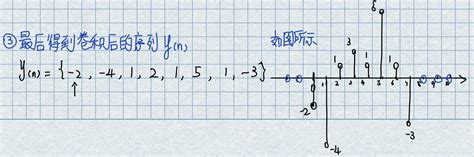 ③最后得到卷积后的序列 y(n), 如图所示
y(n) = {-2, -4, 1, 2, 1, 5, 1, -3}
↑
5
3
1
1
1 2 3 4 5 6 7
-2
-3
-4